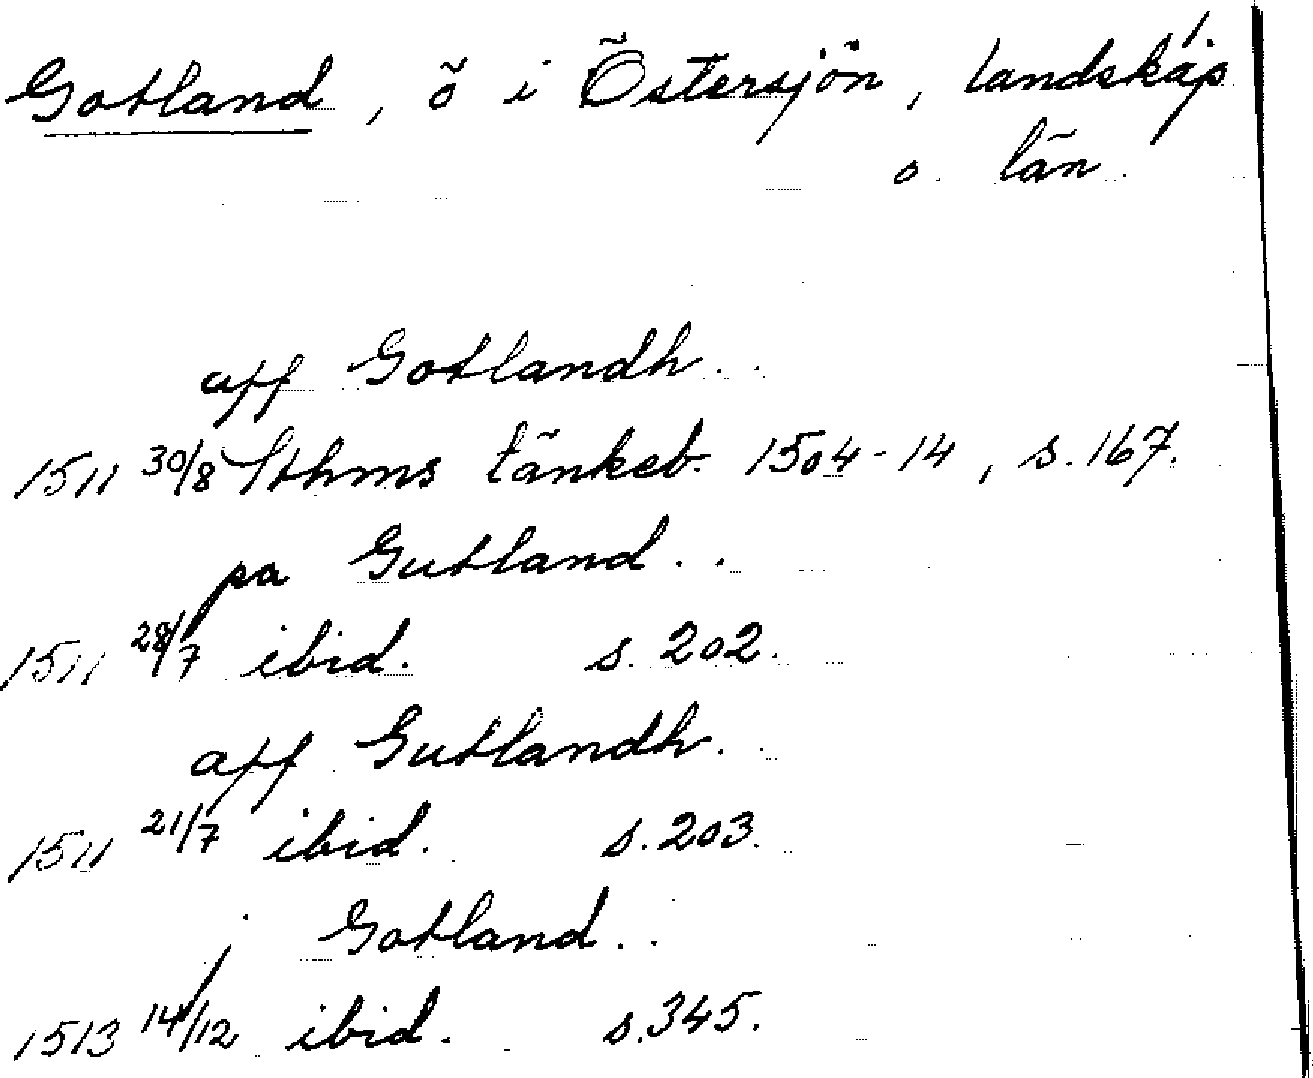 Gotland, ö i Östersjön, landskap
o. län.
aff Gotlandh..
1511 30/8 Sthms tänkeb. 1504-14, s. 167.
pa Gutland..
1511 28/7 ibid. s. 202.
aff Gutlandh..
1511 21/7 ibid. s. 203.
j Gotland..
1513 14/12 ibid. s. 345.